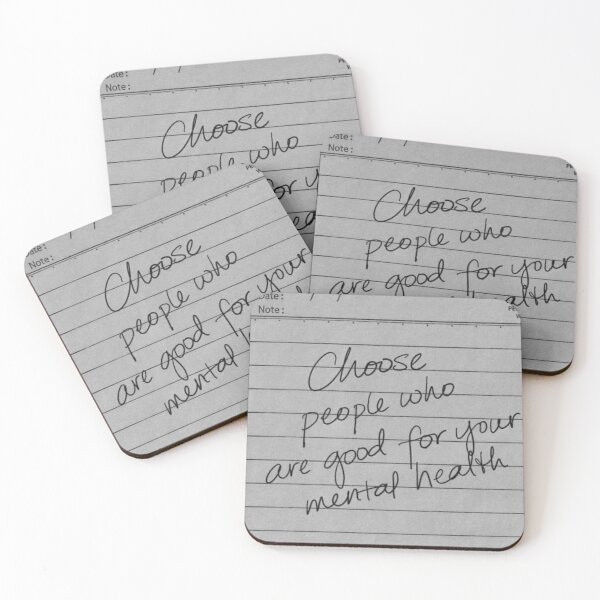 Note:
Choose
people who
Note:
Choose
people who
are good for your
health
Note:
Choose
people who
are good for your
mental
Date:
Note:
Choose
people who
are good for your
mental health